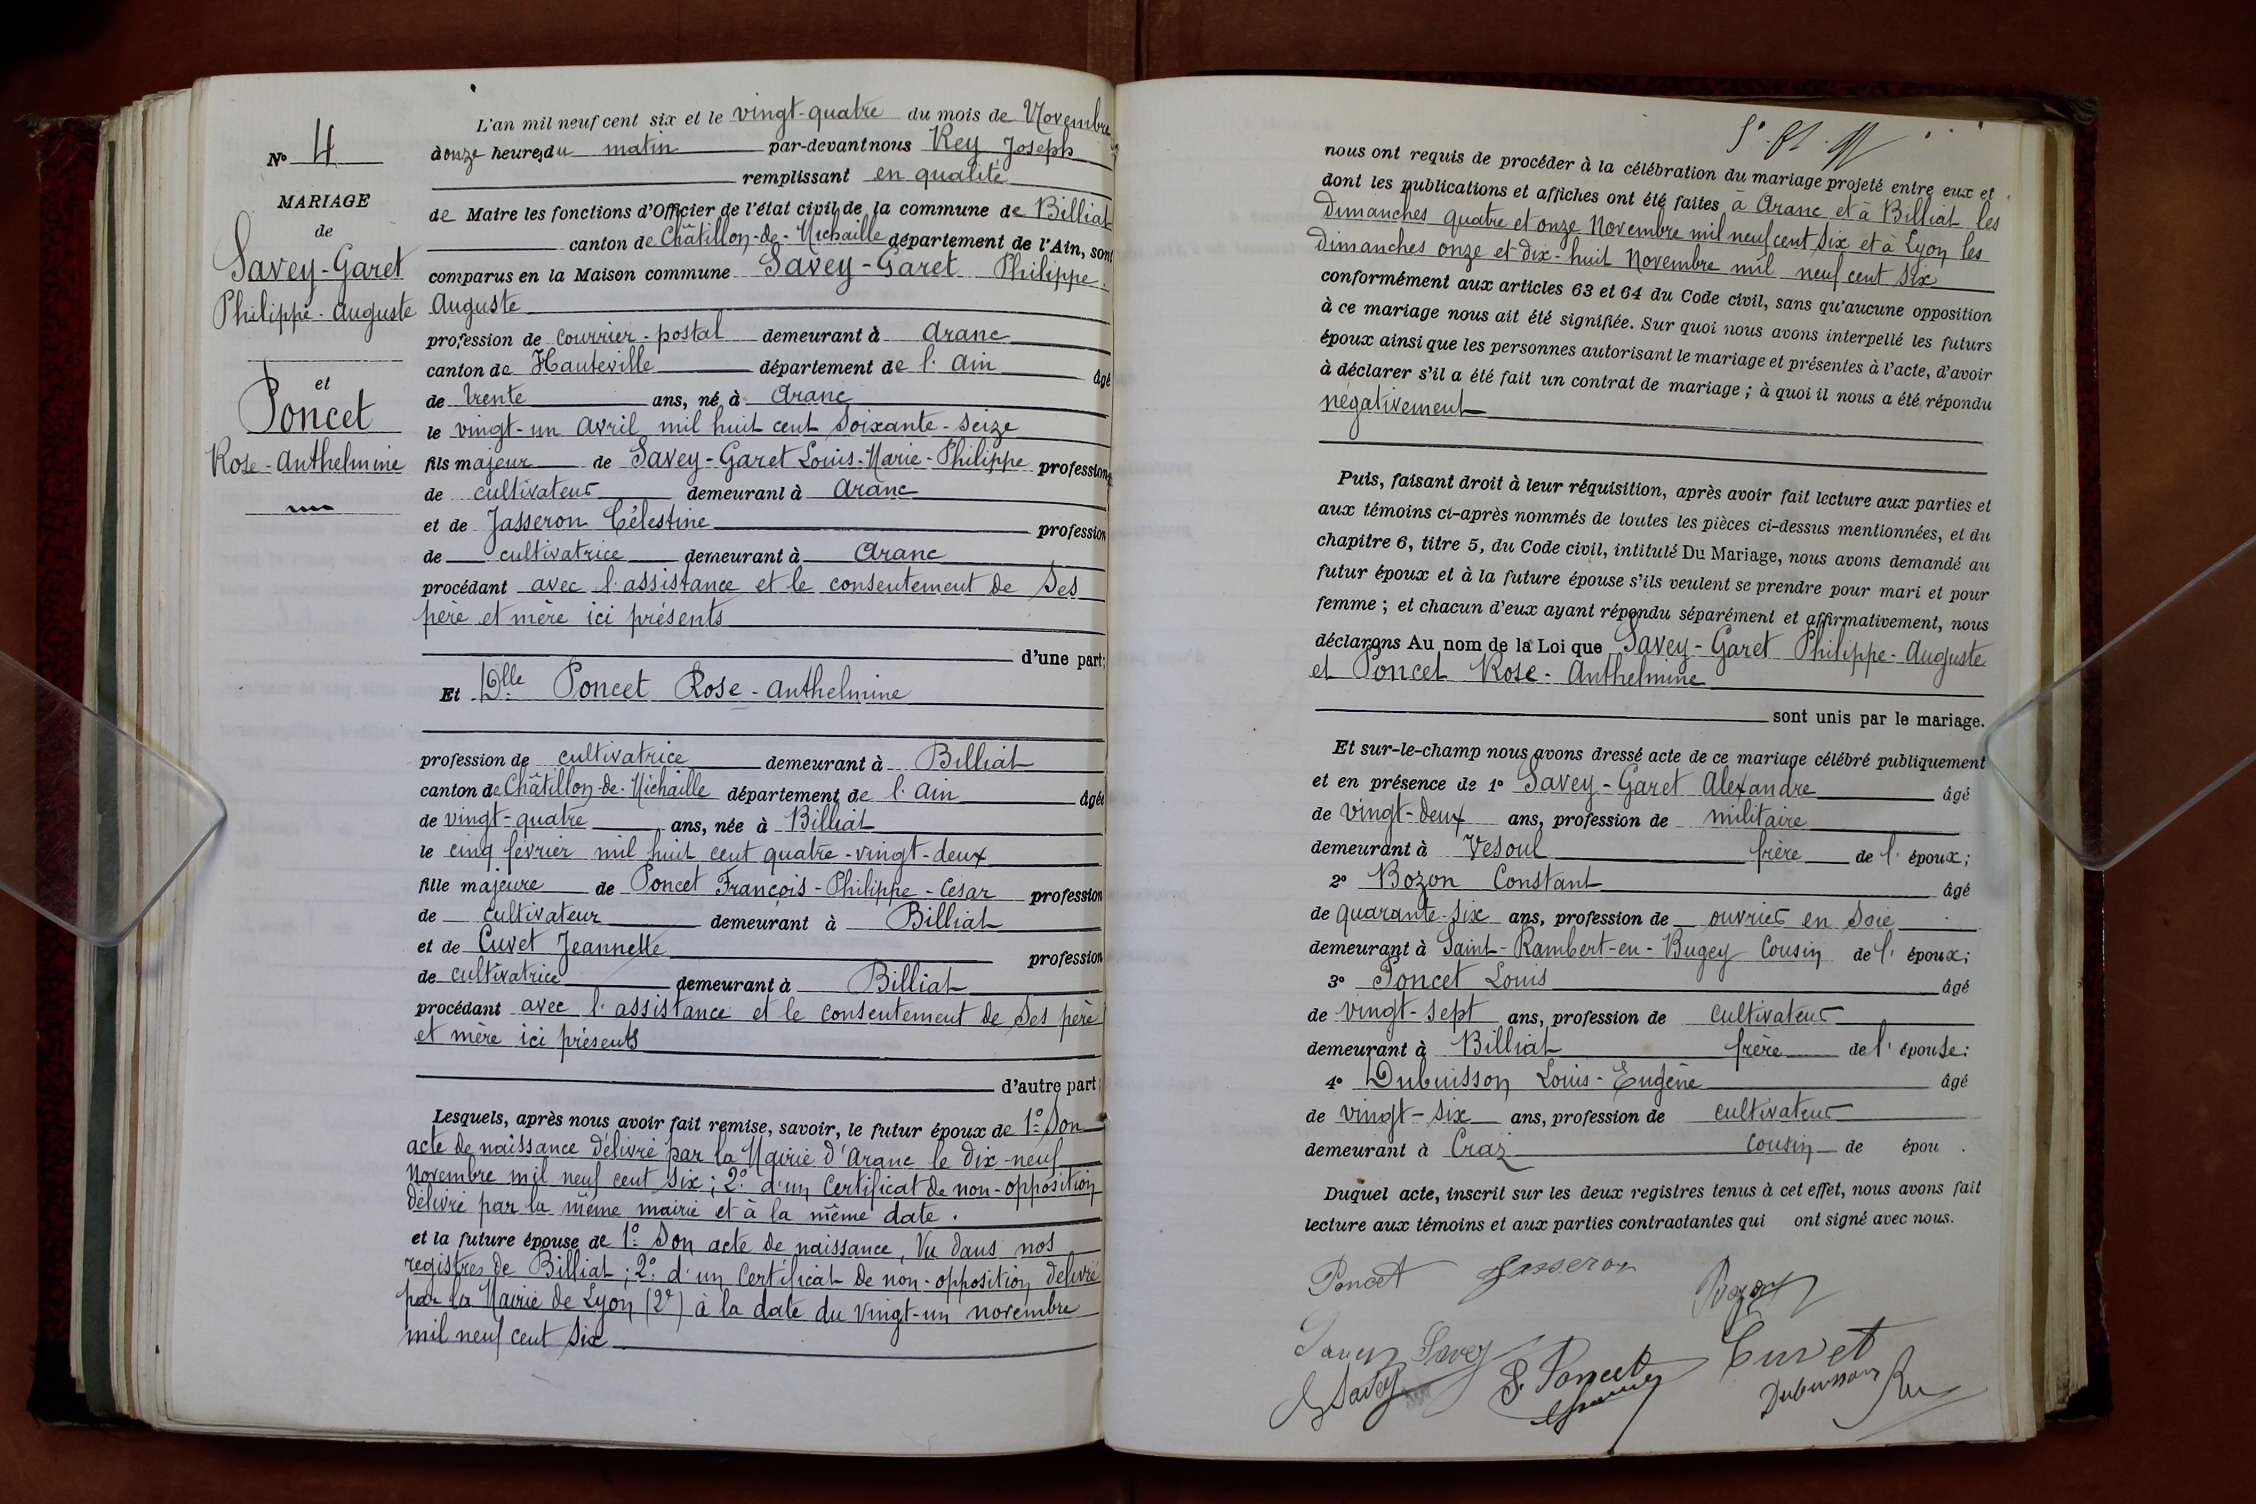 L'an mil neuf cent six et le vingt-quatre du mois de Novembre
à onze heures du matin par-devant nous Rey Joseph
remplissant en qualité
de Maire les fonctions d'Officier de l'état civil de la commune de Billiat
canton de Châtillon-de-Michaille département de l'Ain, sont
comparus en la Maison commune Savey-Garet Philippe-
Auguste
profession de courrier-postal demeurant à Aranc
canton de Hauteville département de l'Ain âgé
de trente ans, né à Aranc
le vingt-un Avril mil huit cent soixante-seize
fils majeur de Savey-Garet Louis-Marie-Philippe profession
de cultivateur demeurant à Aranc
et de Jasseron Célestine profession
de cultivatrice demeurant à Aranc
procédant avec l'assistance et le consentement de ses
père et mère ici présents
d'une part;
Et Dlle Poncet Rose-Anthelmine
profession de cultivatrice demeurant à Billiat
canton de Châtillon-de-Michaille département de l'Ain âgée
de vingt-quatre ans, née à Billiat
le cinq février mil huit cent quatre-vingt-deux
fille majeure de Poncet François-Philippe-César profession
de cultivateur demeurant à Billiat
et de Cuvet Jeannette profession
de cultivatrice demeurant à Billiat
procédant avec l'assistance et le consentement de ses père
et mère ici présents
d'autre part;
Lesquels, après nous avoir fait remise, savoir, le futur époux de 1º Son
acte de naissance délivré par la Mairie d'Aranc le dix-neuf
Novembre mil neuf cent six; 2º d'un Certificat de non-opposition
délivré par la même mairie et à la même date.
et la future épouse de 1º Son acte de naissance, Vu dans nos
registres de Billiat; 2º d'un Certificat de non-opposition délivré
par la Mairie de Lyon (2e) à la date du vingt-un novembre
mil neuf cent six
Nº 4
MARIAGE
de
Savey-Garet
Philippe-Auguste
et
Poncet
Rose-Anthelmine
nous ont requis de procéder à la célébration du mariage projeté entre eux et
dont les publications et affiches ont été faites à Aranc et à Billiat les
Dimanches quatre et onze Novembre mil neuf cent six et à Lyon les
dimanches onze et dix-huit Novembre mil neuf cent six
conformément aux articles 63 et 64 du Code civil, sans qu'aucune opposition
à ce mariage nous ait été signifiée. Sur quoi nous avons interpellé les futurs
époux ainsi que les personnes autorisant le mariage et présentes à l'acte, d'avoir
à déclarer s'il a été fait un contrat de mariage; à quoi il nous a été répondu
négativement
Puis, faisant droit à leur réquisition, après avoir fait lecture aux parties et
aux témoins ci-après nommés de toutes les pièces ci-dessus mentionnées, et du
chapitre 6, titre 5, du Code civil, intitulé Du Mariage, nous avons demandé au
futur époux et à la future épouse s'ils veulent se prendre pour mari et pour
femme; et chacun d'eux ayant répondu séparément et affirmativement, nous
déclarons Au nom de la Loi que Savey-Garet Philippe-Auguste
et Poncet Rose-Anthelmine
sont unis par le mariage.
Et sur-le-champ nous avons dressé acte de ce mariage célébré publiquement
et en présence de 1º Savey-Garet Alexandre âgé
de vingt-deux ans, profession de militaire
demeurant à Vesoul frère de l'époux;
2º Bozon Constant âgé
de quarante-six ans, profession de ouvrier en soie
demeurant à Saint-Rambert-en-Bugey Cousin de l'époux;
3º Poncet Louis âgé
de vingt-sept ans, profession de cultivateur
demeurant à Billiat frère de l'épouse;
4º Dubuisson Louis-Eugène âgé
de vingt-six ans, profession de cultivateur
demeurant à Craz cousin de épou .
Duquel acte, inscrit sur les deux registres tenus à cet effet, nous avons fait
lecture aux témoins et aux parties contractantes qui ont signé avec nous.
Poncet Jasseron Bozon
Savey Savey Cuvet
Savey Poncet Dubuisson Rey